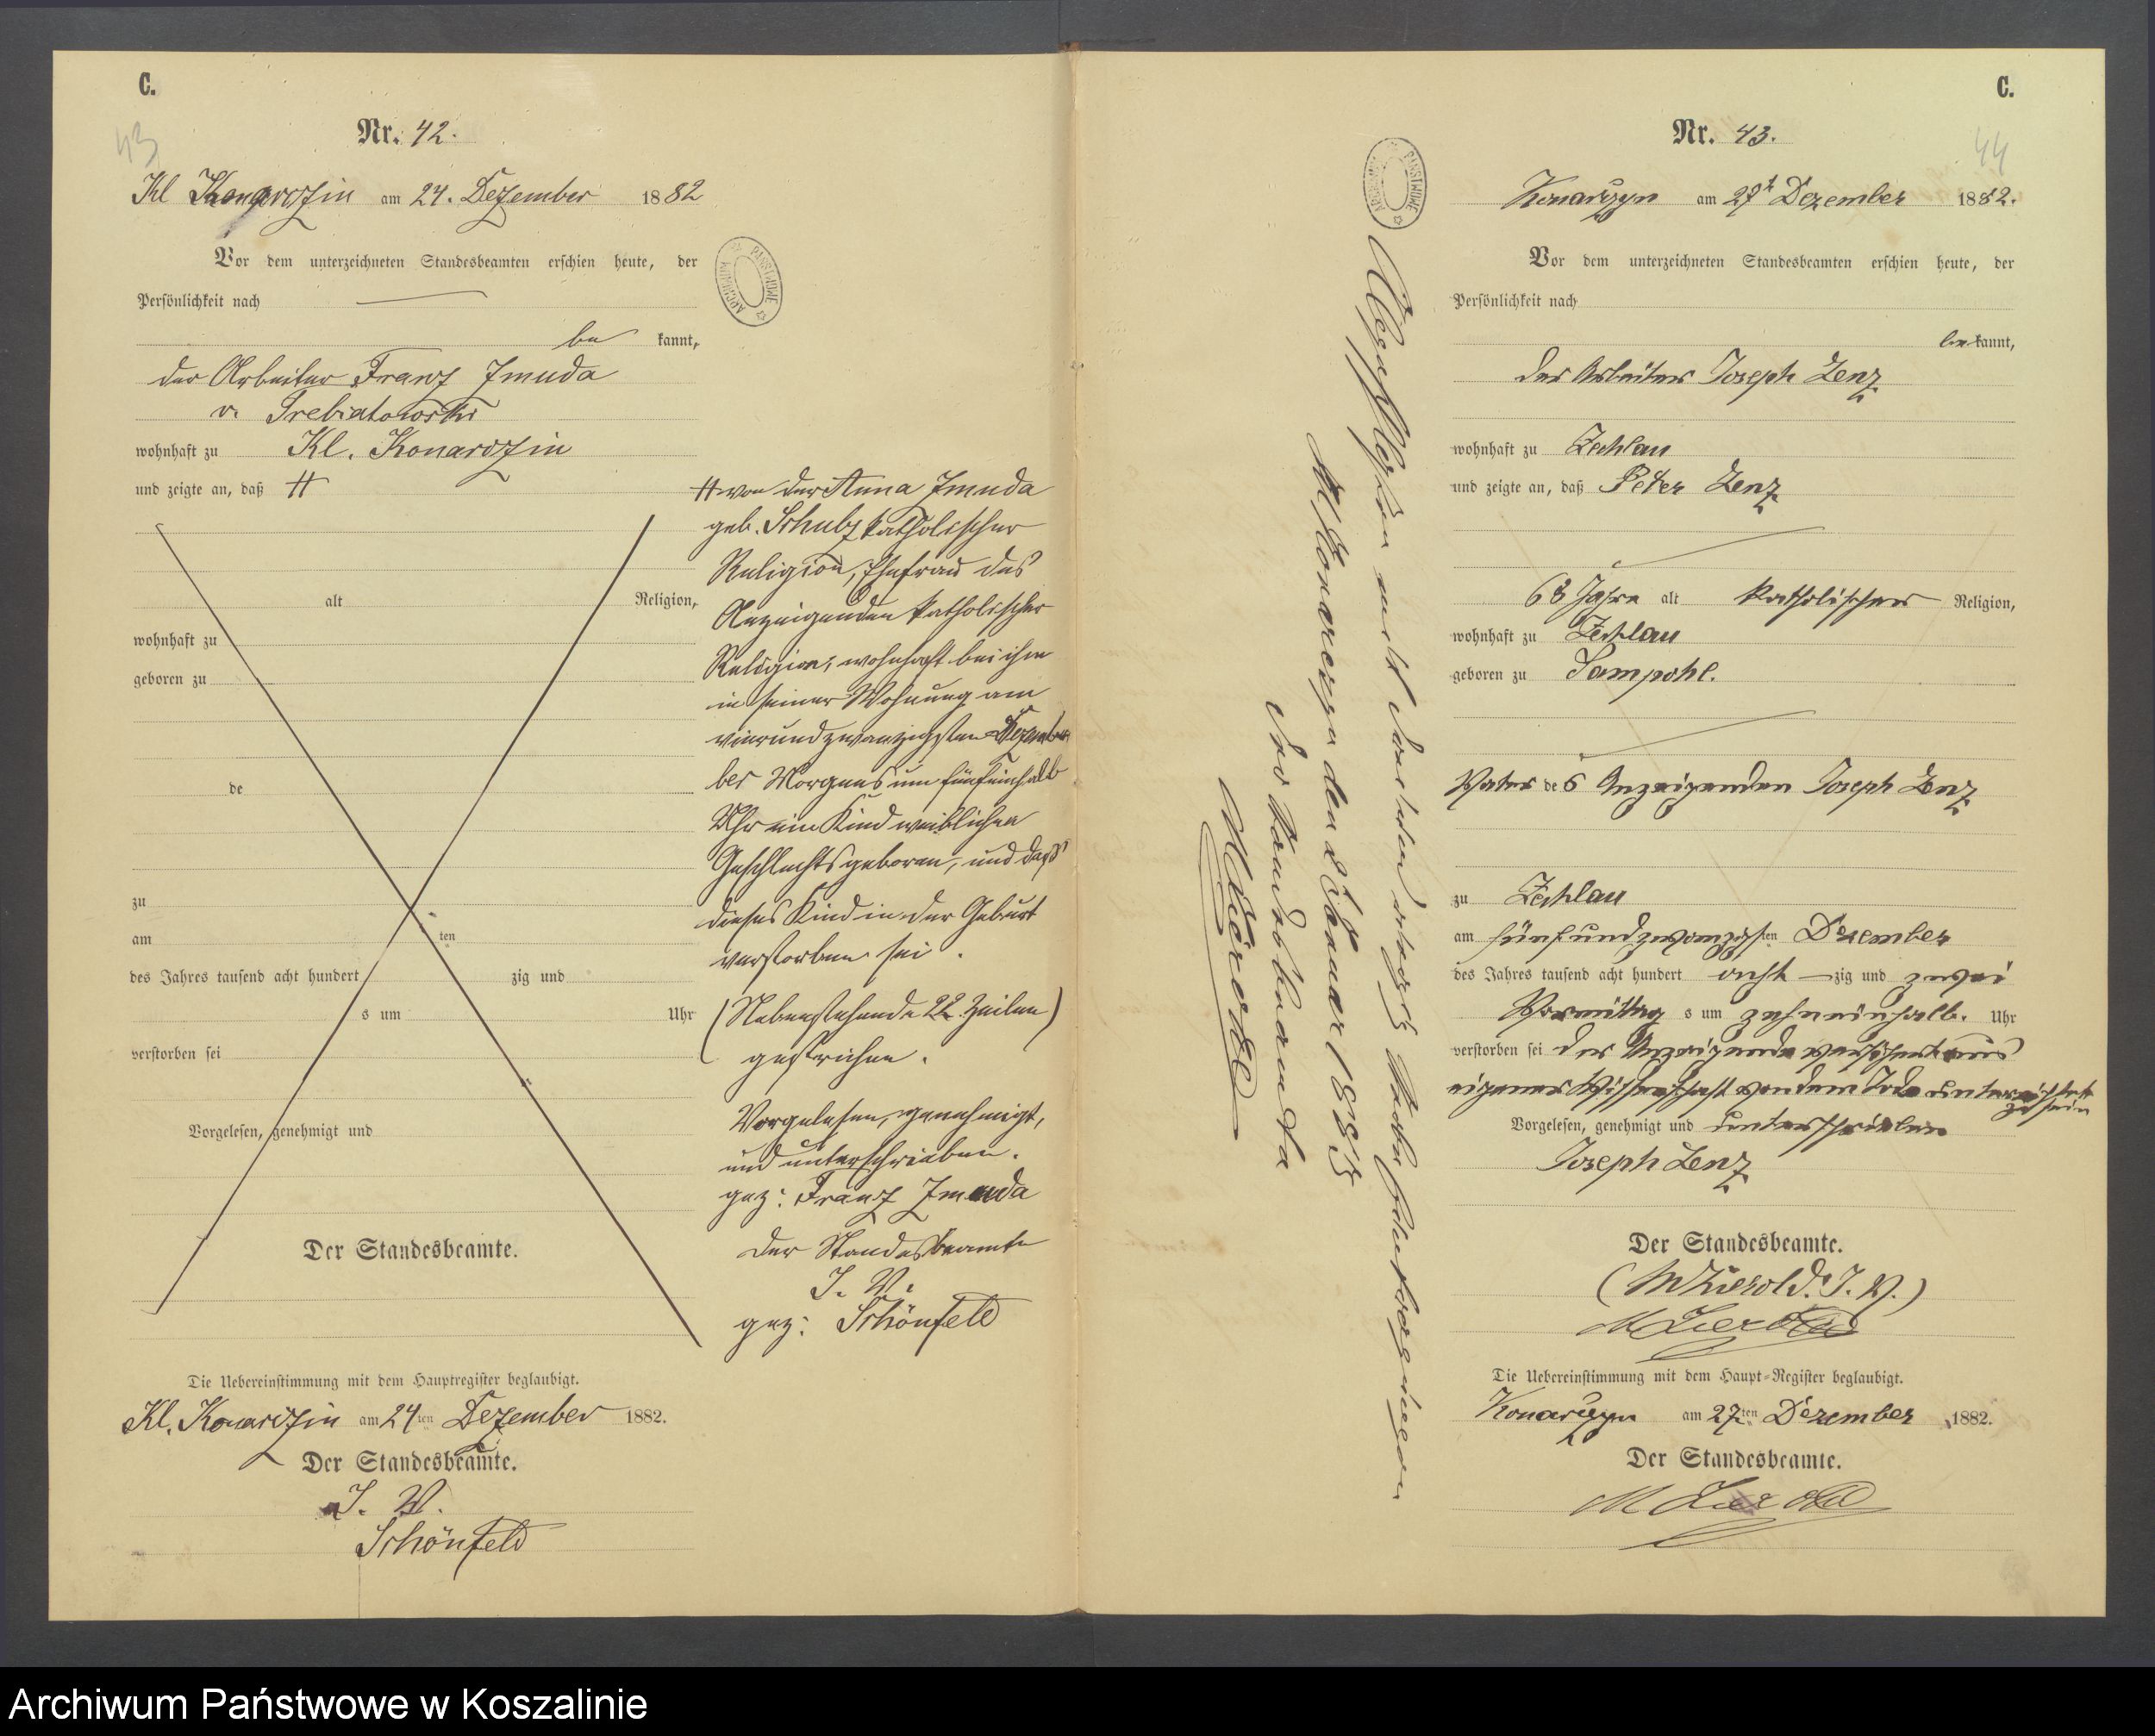 C.
43
Nr. 42.
Kl Konarczin am 24. Dezember 1882
Vor dem unterzeichneten Standesbeamten erschien heute, der
Persönlichkeit nach
be kannt,
der Arbeiter Franz Zmuda
v. Trebiatowski
wohnhaft zu Kl. Konarczin
und zeigte an, daß #
alt Religion,
wohnhaft zu
geboren zu
de
zu
am ten
des Jahres tausend acht hundert zig und
s um Uhr
verstorben sei
Vorgelesen, genehmigt und
Der Standesbeamte.
Die Uebereinstimmung mit dem Hauptregister beglaubigt.
Kl. Konarczin am 24ten Dezember 1882.
Der Standesbeamte.
J. V.
Schönfeld
# von der Anna Zmuda
geb. Schulz katholischer
Religion, Ehefrau des
Anzeigenden katholischer
Religion, wohnhaft bei ihm
in seiner Wohnung am
vierundzwanzigsten Dezem
ber Morgens um fünfeinhalb
Uhr ein Kind weiblichen
Geschlechts geboren, und daß
dieses Kind in der Geburt
verstorben sei.
(Nebenstehende 22 Zeilen)
gestrichen.
Vorgelesen, genehmigt,
und unterschrieben.
gez: Franz Zmuda
Der Standesbeamte
J. V.
gez: Schönfeld
Abgeschlossen mit
Konarczyn den 2 Januar 1883
Der Standesbeamte
M Zierold
C.
44
Nr. 43.
Konarczyn am 27t Dezember 1882.
Vor dem unterzeichneten Standesbeamten erschien heute, der
Persönlichkeit nach
be kannt,
der Arbeiter Joseph Lenz
wohnhaft zu Zechlau
und zeigte an, daß Peter Lenz
68 Jahre alt katholischer Religion,
wohnhaft zu Zechlau
geboren zu Sampohl.
Vater des Anzeigenden Joseph Lenz
zu Zechlau
am fünfundzwanzigsten Dezember
des Jahres tausend acht hundert acht zig und zwei
Vormittag s um zehneinhalb. Uhr
verstorben sei der Anzeigende versichert aus
eigener Wissenschaft von dem Tode unterrichtet
zu sein
Vorgelesen, genehmigt und unterschrieben
Joseph Lenz
Der Standesbeamte.
(M Zierold. J. V.)
M Zierold
Die Uebereinstimmung mit dem Haupt-Register beglaubigt.
Konarczyn am 27ten Dezember 1882.
Der Standesbeamte.
M Zierold
Archiwum Państwowe w Koszalinie